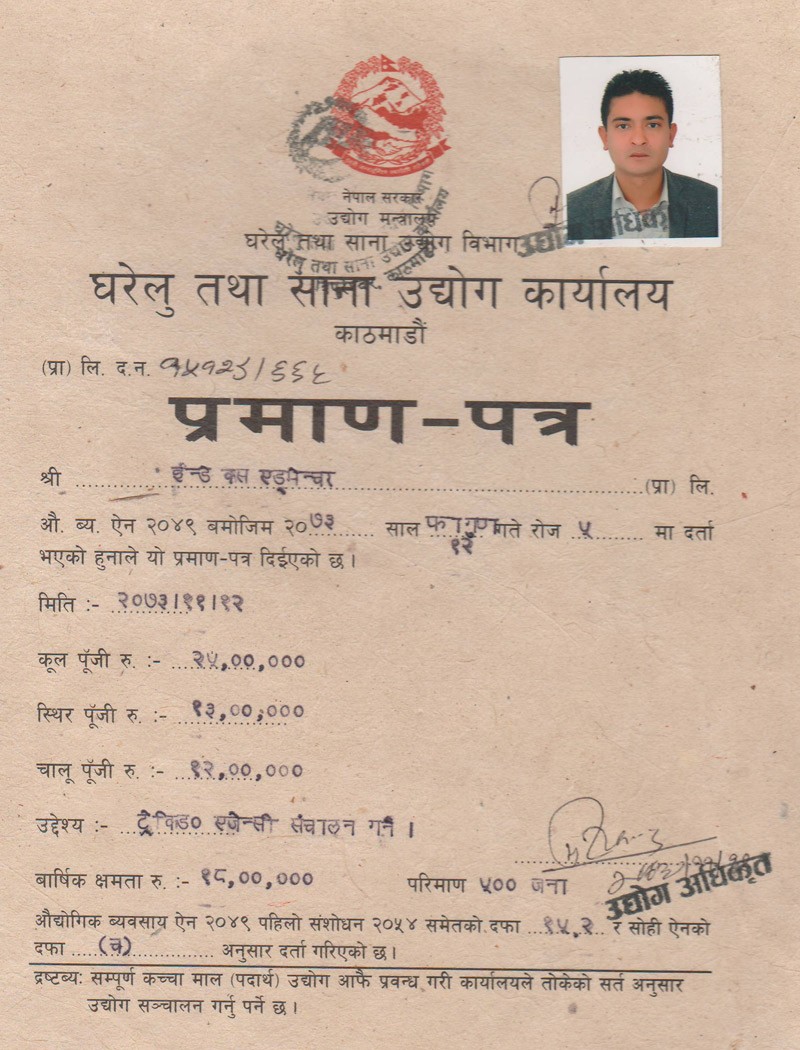 नेपाल सरकार
उद्योग मन्त्रालय
घरेलु तथा साना उद्योग विभाग
घरेलु तथा साना उद्योग कार्यालय
काठमाडौं
उद्योग अधिकृत
(प्रा) लि. द.न. १५१२८/६६५
प्रमाण-पत्र
श्री ईन्डेक्स एड्भेन्चर (प्रा) लि.
औ. ब्य. ऐन २०४९ बमोजिम २०७३ साल फागुण १२ गते रोज ५ मा दर्ता
भएको हुनाले यो प्रमाण-पत्र दिईएको छ ।
मिति :- २०७३।११।१२
कूल पूँजी रु. :- २५,००,०००
स्थिर पूँजी रु. :- १३,००,०००
चालू पूँजी रु. :- १२,००,०००
उद्देश्य :- ट्रेकिङ० एजेन्सी संचालन गर्ने ।
बार्षिक क्षमता रु. :- १८,००,००० परिमाण ५०० जना
उद्योग अधिकृत
औद्योगिक ब्यवसाय ऐन २०४९ पहिलो संशोधन २०५४ समेतको दफा १५.२ र सोही ऐनको
दफा (च) अनुसार दर्ता गरिएको छ ।
द्रष्टब्य: सम्पूर्ण कच्चा माल (पदार्थ) उद्योग आफै प्रवन्ध गरी कार्यालयले तोकेको सर्त अनुसार
उद्योग सञ्चालन गर्नु पर्ने छ ।